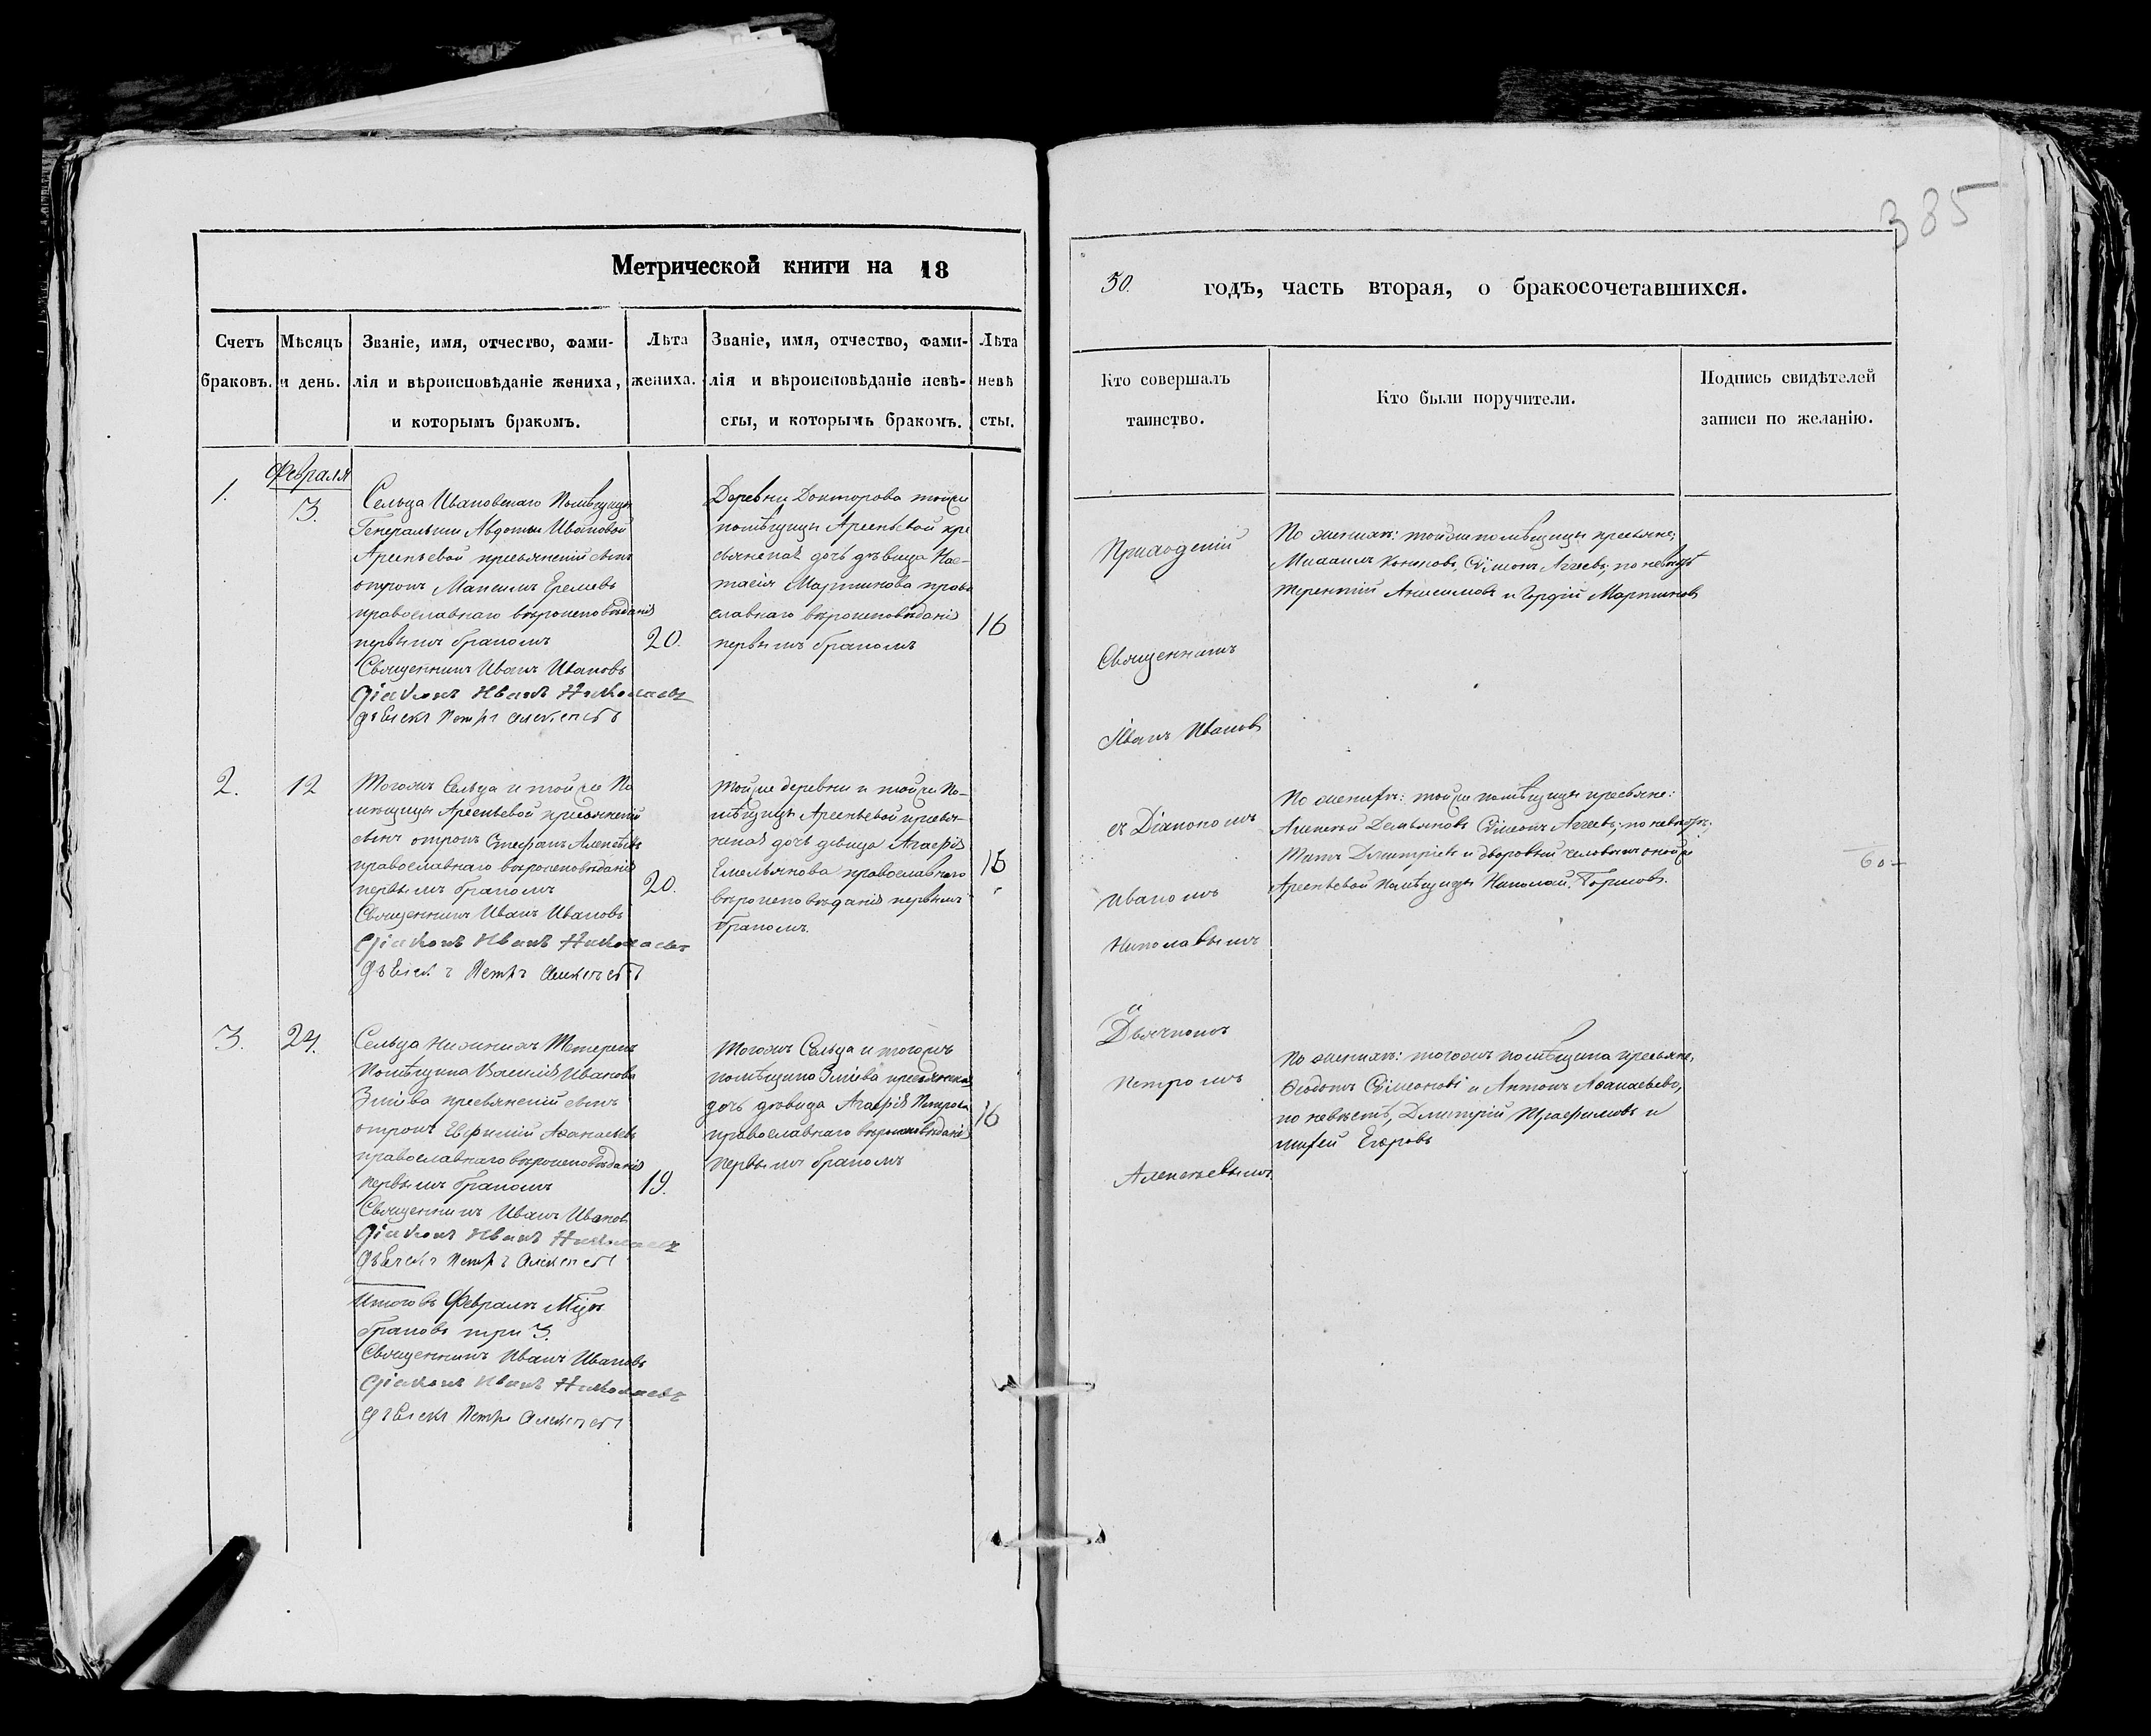 385
Метрической книги на 18
50. годъ, часть вторая, о бракосочетавшихся.
Счетъ браковъ.
Мѣсяцъ и день.
Званіе, имя, отчество, фами-
лія и вѣроисповѣданіе жениха,
и которымъ бракомъ.
Лѣта
жениха.
Званіе, имя, отчество, фами-
лія и вѣроисповѣданіе невѣ-
сты, и которымъ бракомъ.
Лѣта
невѣ
сты.
Кто совершалъ
таинство.
Кто были поручители.
Подпись свидѣтелей
записи по желанію.
1.
Февраля
3.
Сельца Ивановскаго Помѣщицы
Генеральши Авдотьи Ивановой
Арсеньевой крестьянскій сынъ
отрокъ Максимъ Еремѣевъ
православнаго вѣроисповѣданія
первымъ бракомъ
20.
Священникъ Иванъ Ивановъ
Діаконъ Иванъ Николаевъ
Дьячекъ Петръ Алексѣевъ
Деревни Докторова тойже
помѣщицы Арсеньевой кре
стьянская дочь дѣвица Нас-
тасія Мартинова право
славнаго вѣроисповѣданія
первымъ бракомъ
16
Приходскій
Священникъ
Іванъ Ивановъ
съ Діакономъ
Иваномъ
Николаевымъ
и
Дьячкомъ
Петромъ
Алексѣевымъ
По женихѣ: тойже помѣщицы крестьяне;
Михаилъ Кононовъ, Сѵмеонъ Агеевъ; по невѣстѣ
Терентій Анисимовъ и Гордій Мартиновъ
2.
12
Тогожъ Сельца и тойже По
мѣщицы Арсеньевой крестьянскій
сынъ отрокъ Стефанъ Алексѣевъ
православнаго вѣроисповѣданія
первымъ бракомъ
20.
Священникъ Иванъ Ивановъ
Діаконъ Иванъ Николаевъ
Дьячекъ Петръ Алексѣевъ
Тойже деревни и тойже По-
мѣщицы Арсеньевой крестья-
нская дочь дѣвица Агафія
Емельянова православнаго
вѣроисповѣданія первымъ
бракомъ.
15
По женихѣ: тойже помѣщицы крестьяне:
Алексѣй Демьяновъ Сѵмеонъ Агеевъ; по невѣстѣ;
Титъ Дмитріевъ и дворовый человѣкъ онойже
Арсеньевой Помѣщицы Николай
60
3.
24.
Сельца Нижнихъ
Помѣщика Василія Иванова
Зміева крестьянскій сынъ
отрокъ Евфимій Аѳанасьевъ
православнаго вѣроисповѣданія
первымъ бракомъ
19.
Священникъ Иванъ Ивановъ
Діаконъ Иванъ Николаевъ
Дьячекъ Петръ Алексѣевъ
Тогожъ Сельца и тогожъ
помѣщика Зміева крестьянская
дочь дѣвица Агафія Петрова
православнаго вѣроисповѣданія
первымъ бракомъ
16
По женихѣ: тогожъ помѣщика крестьяне,
Ѳеодотъ Сѵмеоновъ и Антонъ Аѳанасьевъ,
по невѣстѣ, Дмитрій и
Егоровъ
Итого въ Февралѣ Мцѣ
браковъ три 3.
Священникъ Иванъ Ивановъ
Діаконъ Иванъ Николаевъ
Дьячекъ Петръ Алексѣевъ